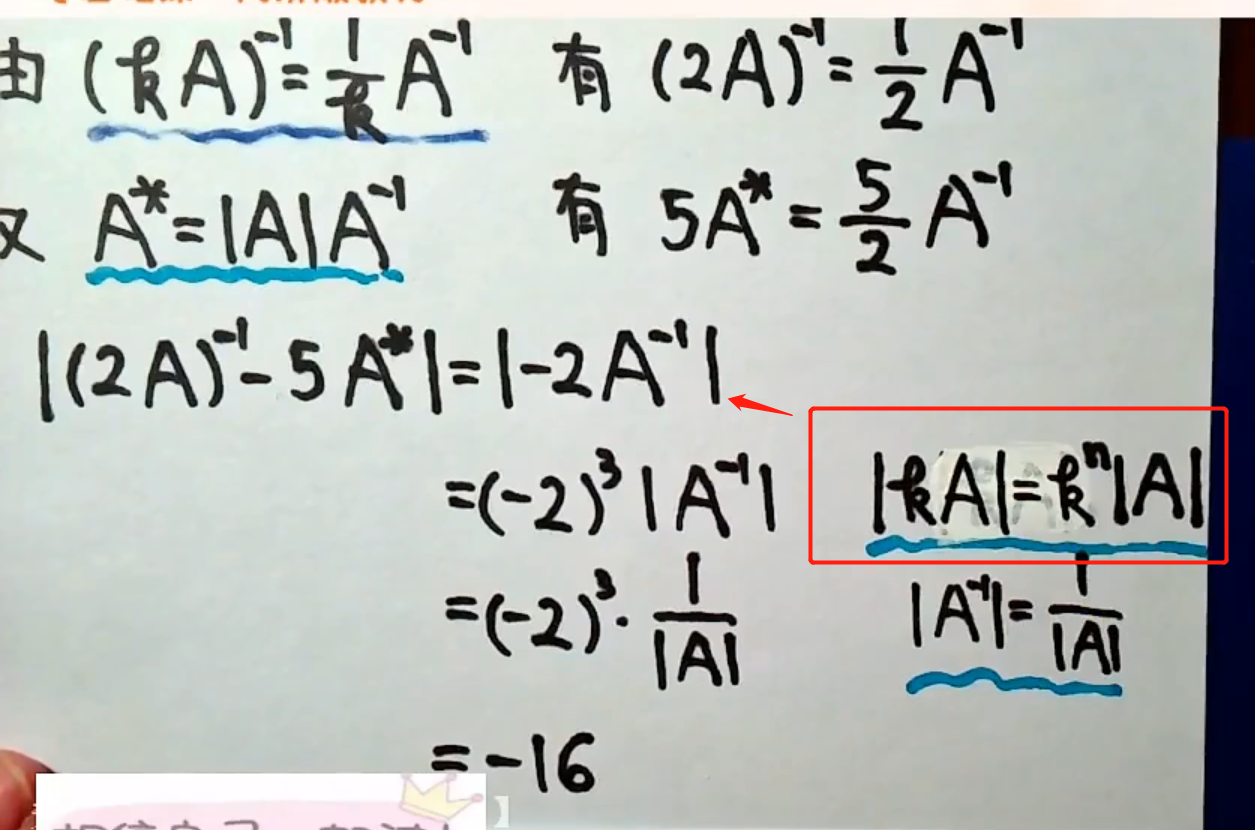 由 (kA)⁻¹=1/k A⁻¹ 有 (2A)⁻¹=1/2 A⁻¹
又 A*=|A|A⁻¹ 有 5A*=5/2 A⁻¹
|(2A)⁻¹-5A*|=|-2A⁻¹|
=(-2)³|A⁻¹| |kA|=kⁿ|A|
=(-2)³·1/|A| |A⁻¹|=1/|A|
=-16
】